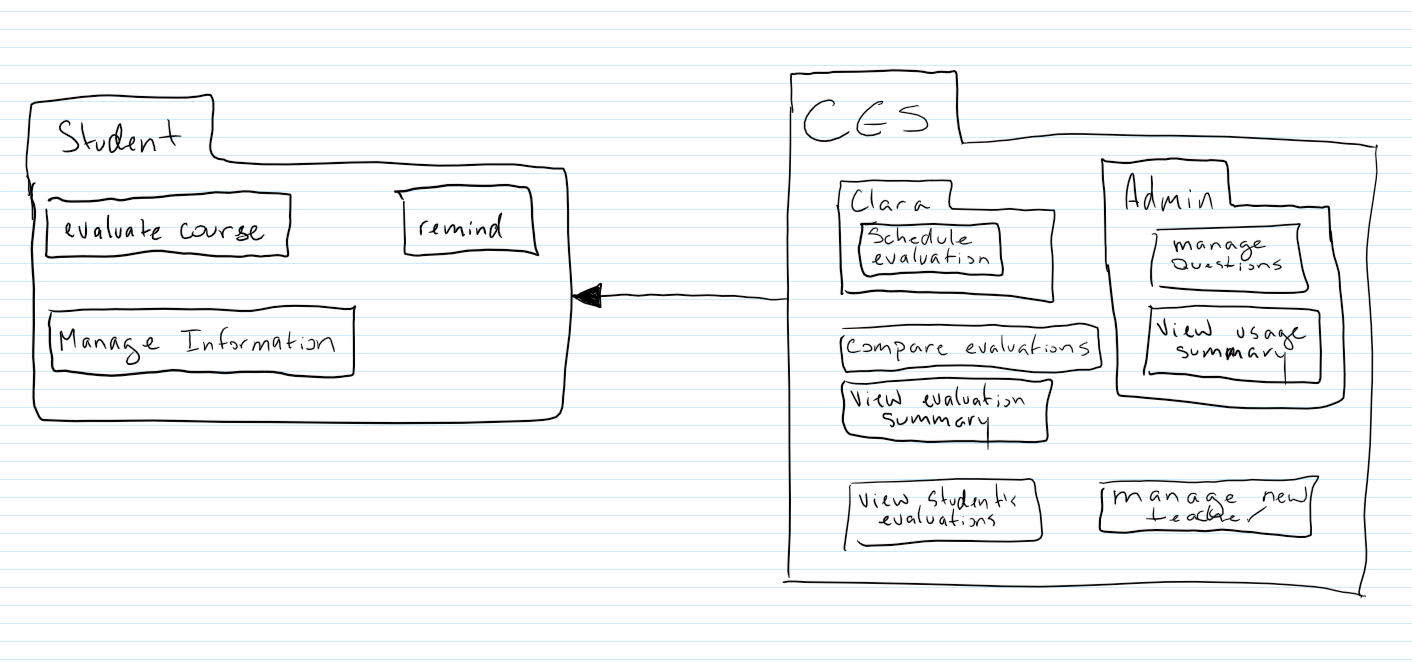 Student
evaluate course
remind
Manage Information
CES
Clara
Schedule
evaluation
Admin
manage
Questions
View usage
summary
Compare evaluations
View evaluation
summary
View Student's
evaluations
manage new
teacher